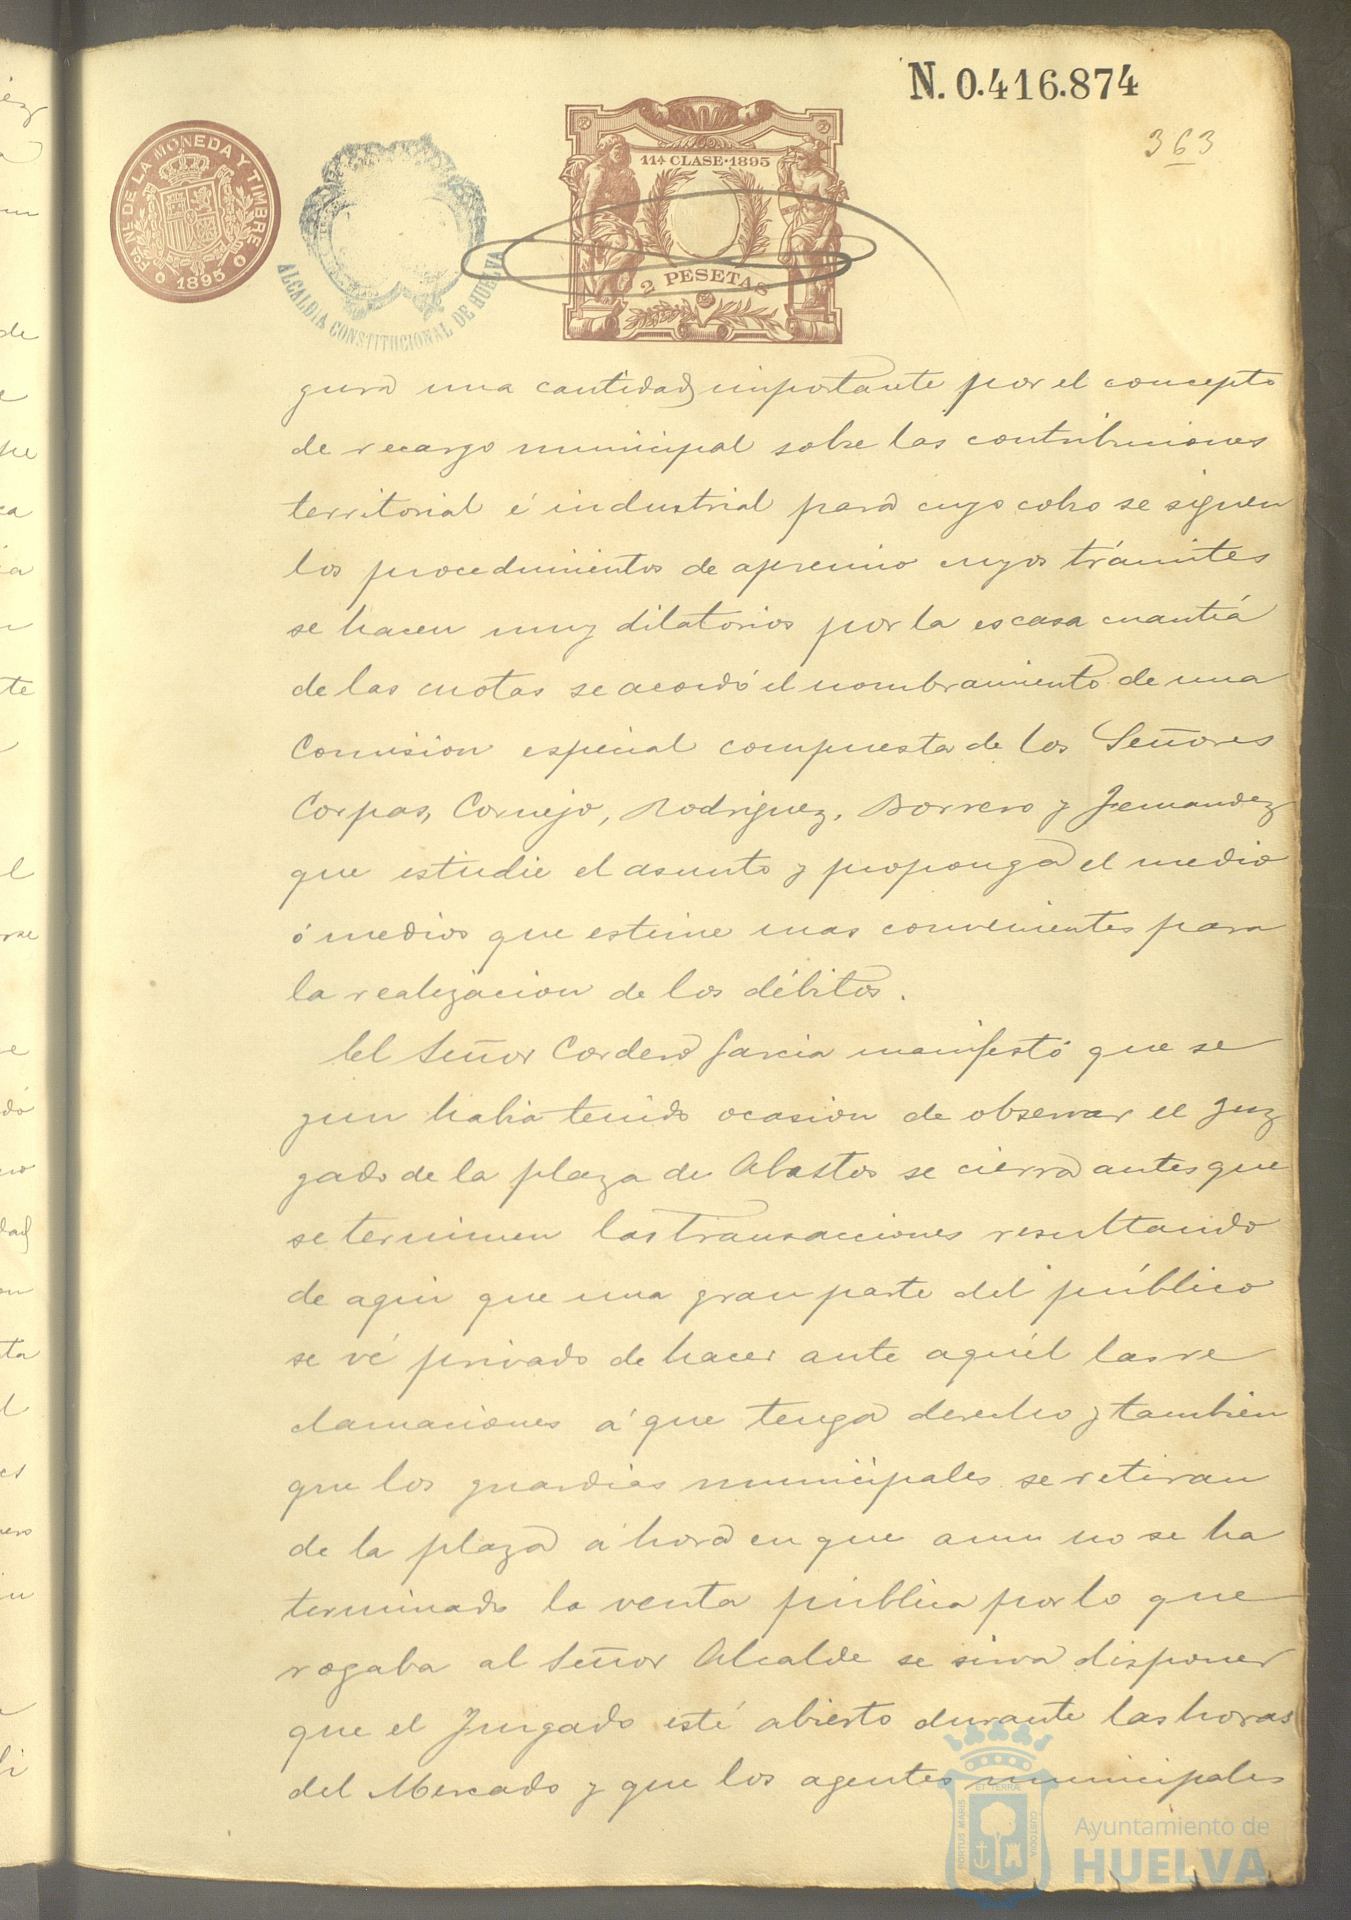 N. 0.416.874
363
FCA. NL. DE LA MONEDA Y TIMBRE
1895
ALCALDIA CONSTITUCIONAL DE HUELVA
11ª CLASE·1895
2 PESETAS
gura una cantidad importante por el concepto
de recargo municipal sobre las contribuciones
territorial é industrial para cuyo cobro se siguen
los procedimientos de apremio cuyos trámites
se hacen muy dilatorios por la escasa cuantía
de las cuotas se acordó el nombramiento de una
Comision especial compuesta de los Señores
Corpas, Cornejo, Rodriguez, Borrero y Fernandez
que estudie el asunto y proponga el medio
ó medios que estime mas convenientes para
la realizacion de los débitos.
El Señor Cordero Garcia manifestó que se
gun habia tenido ocasion de observar el Juz
gado de la plaza de Abastos se cierra antes que
se terminen las transacciones resultando
de aqui que una gran parte del público
se vé privado de hacer ante aquél las re
clamaciones á que tenga derecho y tambien
que los guardias municipales se retiran
de la plaza á hora en que aun no se ha
terminado la venta pública por lo que
rogaba al Señor Alcalde se sirva disponer
que el Juzgado esté abierto durante las horas
del Mercado y que los agentes municipales
PORTUS MARIS ET TERRAE CUSTODIA
Ayuntamiento de
HUELVA